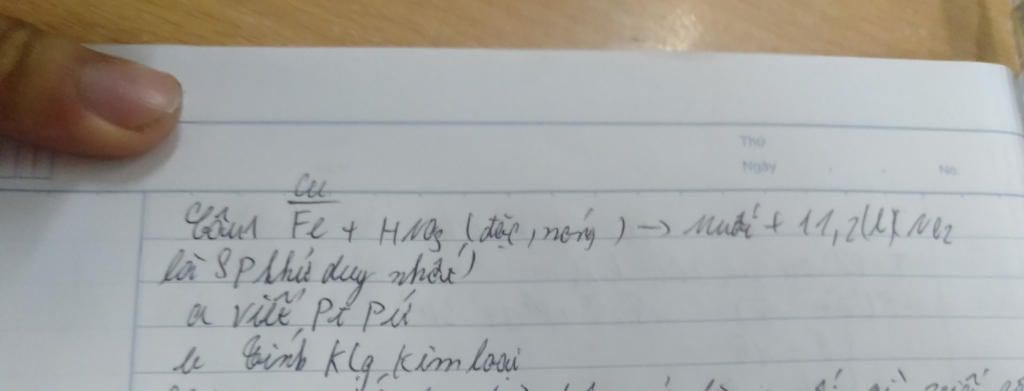 Thứ
Ngày No.
Cu
Câu1 Fe + HNO3 (đặc, nóng) → muối + 11,2(l)( NO2
là SP khử duy nhất)
a viết Pt Pứ
b tính Klg kim loại